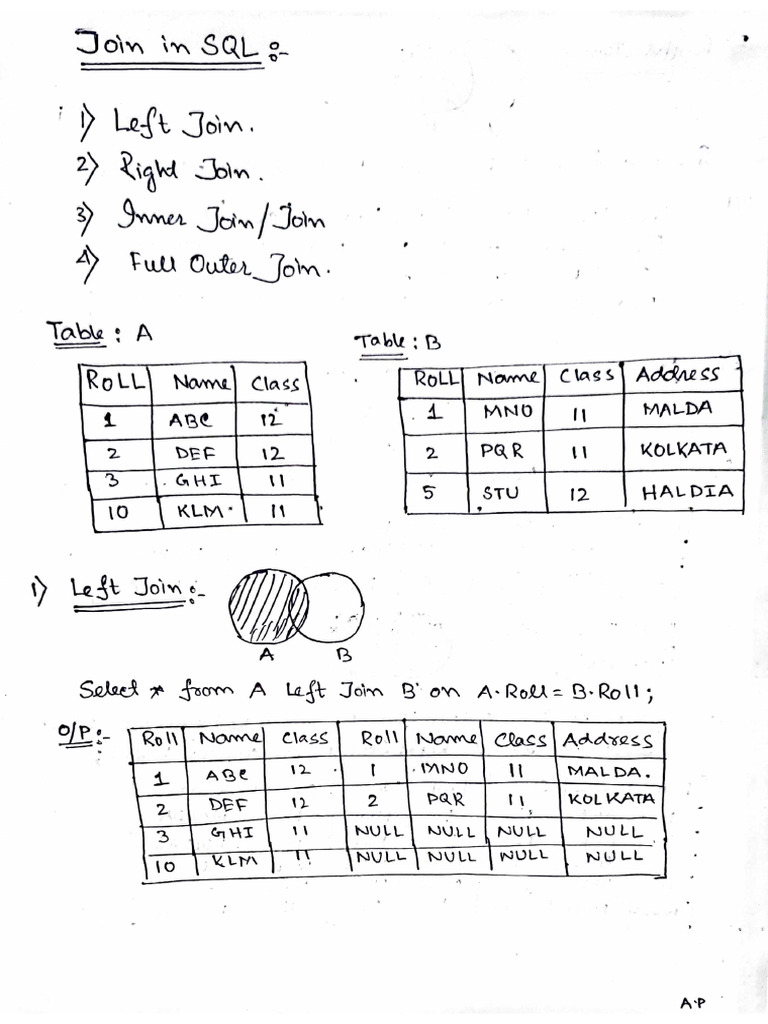 Join in SQL :-
1) Left Join.
2) Right Join.
3) Inner Join/Join
4) Full Outer Join.
Table : A
ROLL Name Class
1 ABC 12
2 DEF 12
3 GHI 11
10 KLM 11
Table : B
ROLL Name Class Address
1 MNO 11 MALDA
2 PQR 11 KOLKATA
5 STU 12 HALDIA
1) Left Join :-
A B
Select * from A Left Join B on A.Roll = B.Roll;
O/P :-
Roll Name Class Roll Name Class Address
1 ABC 12 1 MNO 11 MALDA.
2 DEF 12 2 PQR 11 KOLKATA
3 GHI 11 NULL NULL NULL NULL
10 KLM 11 NULL NULL NULL NULL
A.P